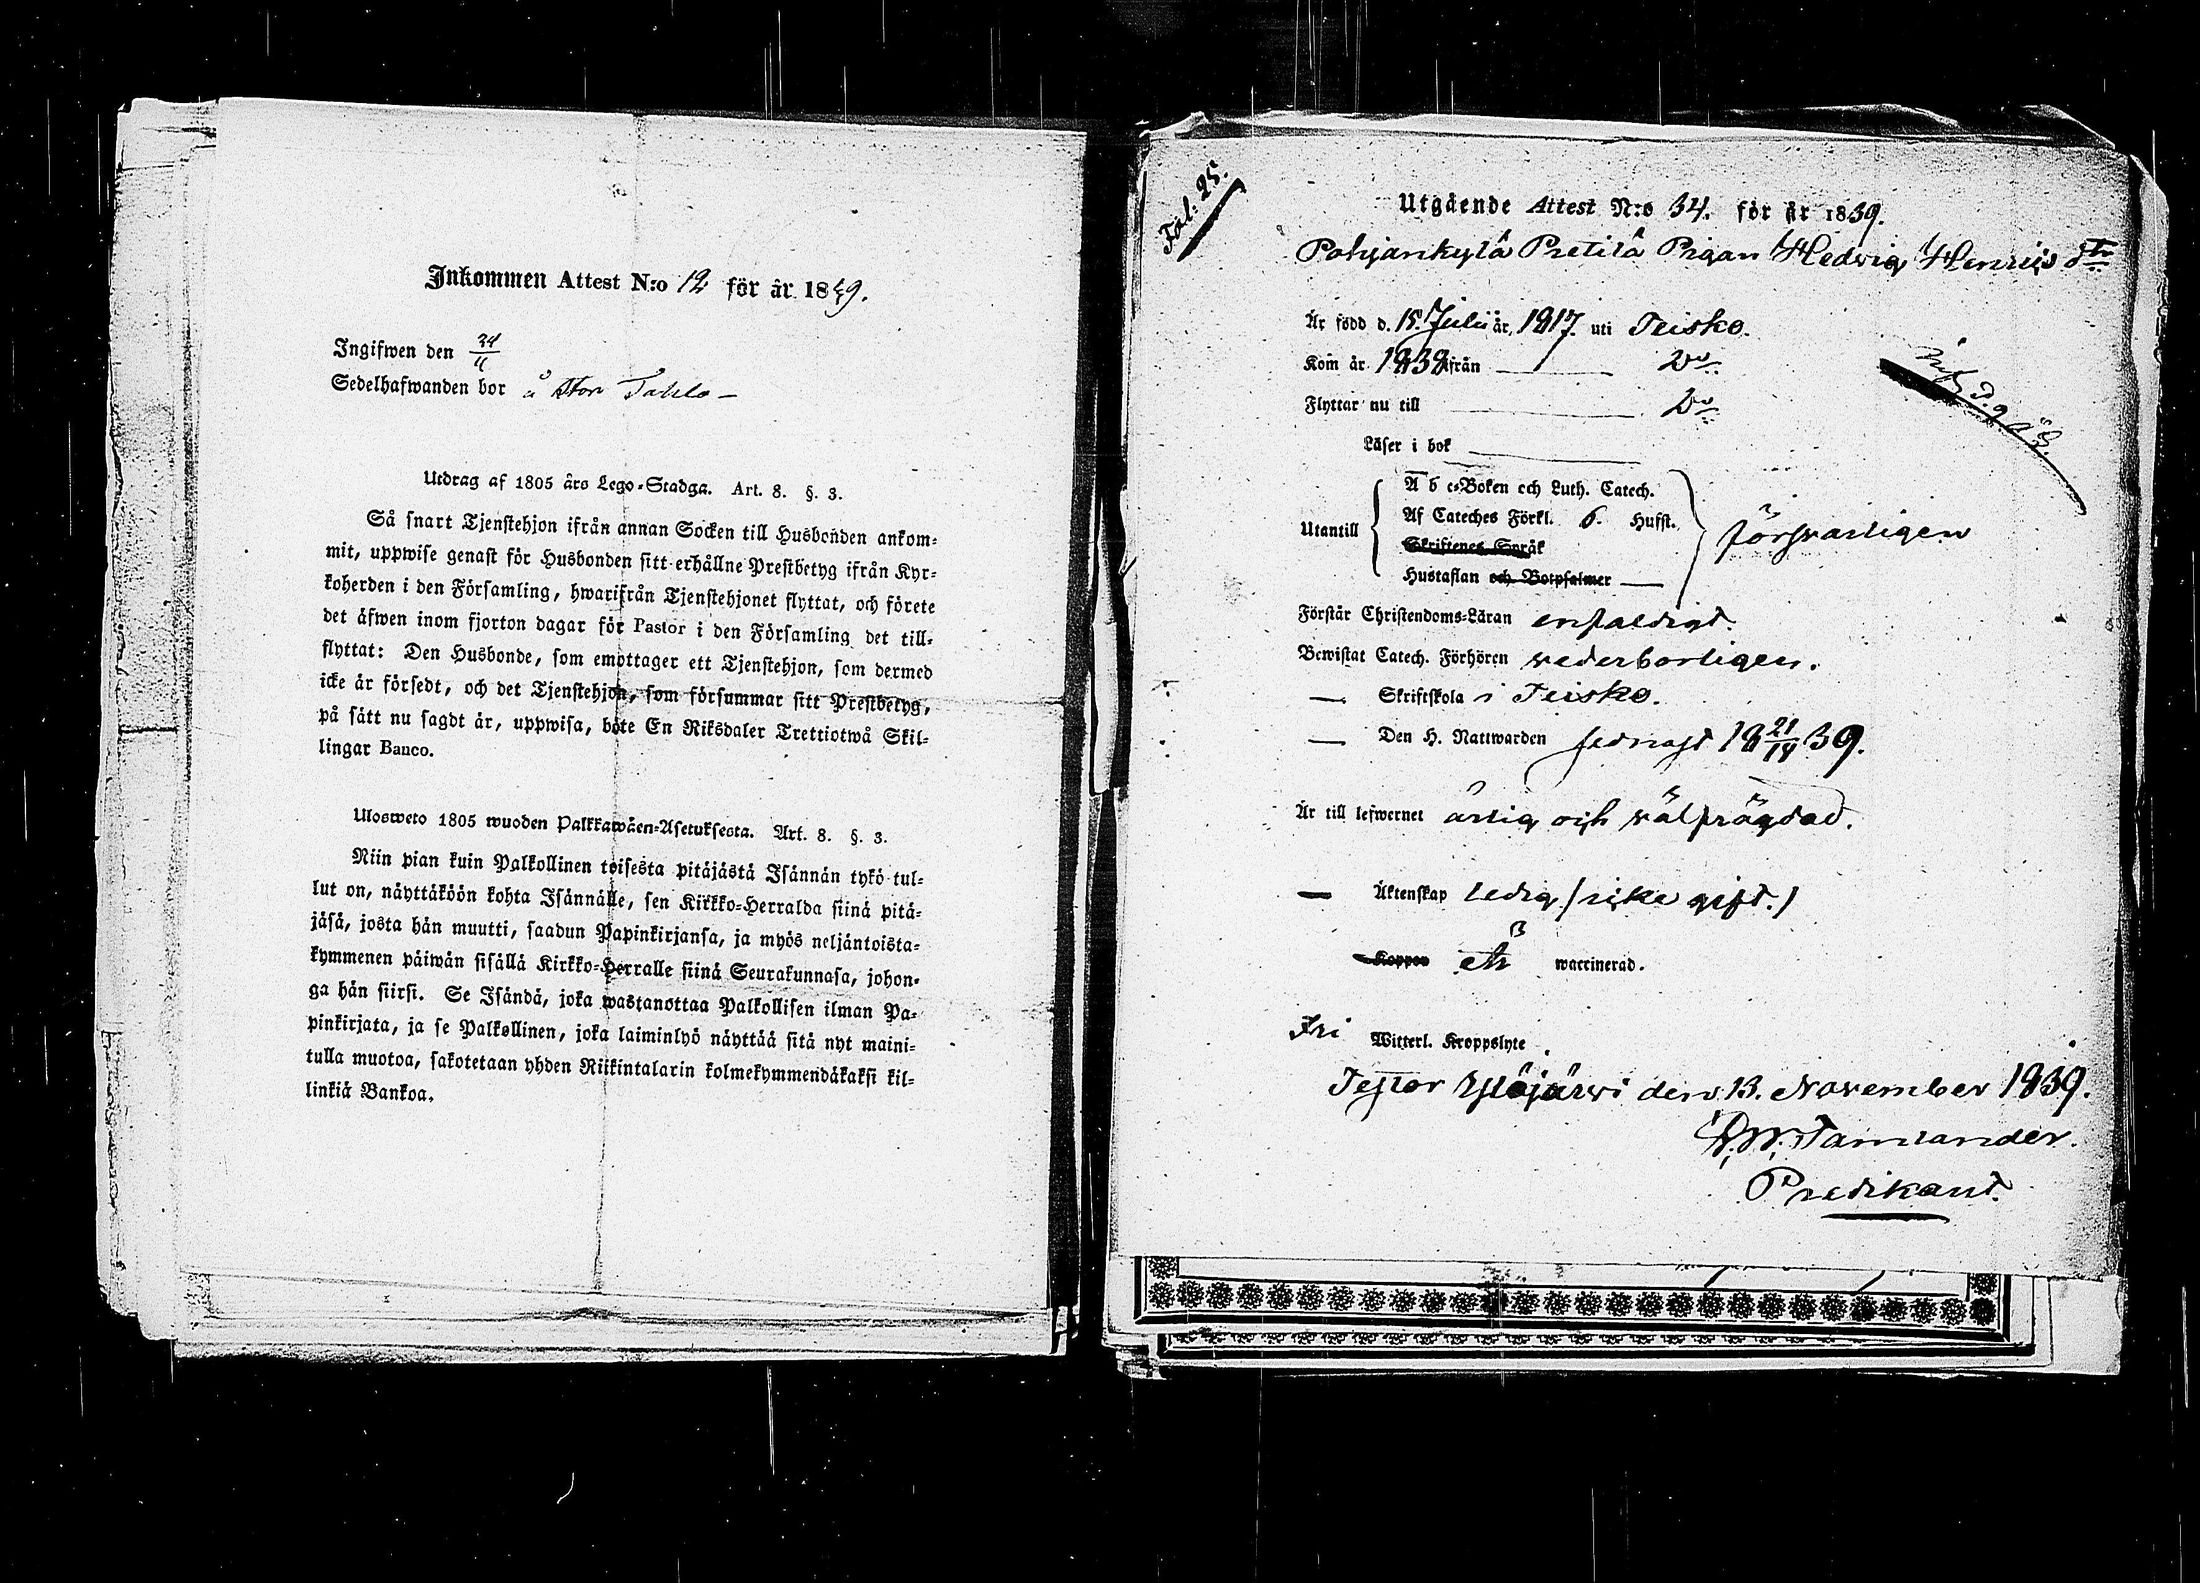 Inkommen Attest N:o 12 för år 1839.
Ingifwen den 24/11
Sedelhafwanden bor å Stor Tahlo –
Utdrag af 1805 års Lego-Stadga. Art. 8. §. 3.
Så snart Tjenstehjon ifrån annan Socken till Husbonden ankom-
mit, uppwise genast för Husbonden sitt erhållne Prestbetyg ifrån Kyr-
koherden i den Församling, hwarifrån Tjenstehjonet flyttat, och förete
det äfwen inom fjorton dagar för Pastor i den Församling det till-
flyttat: Den Husbonde, som emottager ett Tjenstehjon, som dermed
icke är försedt, och det Tjenstehjon, som försummar sitt Prestbetyg,
på sätt nu sagdt är, uppwisa, böte En Riksdaler Trettiotwå Skil-
lingar Banco.
Ulosweto 1805 wuoden Palkkawäen-Asetuksesta. Art. 8. §. 3.
Niin pian kuin Palkollinen toisesta pitäjästä Isännän tykö tul-
lut on, näyttäköön kohta Isännälle, sen Kirkko-Herralda siinä pitä-
jäsä, josta hän muutti, saadun Papinkirjansa, ja myös neljäntoista-
kymmenen päiwän sisällä Kirkko-Herralle siinä Seurakunnasa, johon-
ga hän siirsi. Se Isändä, joka wastanottaa Palkollisen ilman Pa-
pinkirjata, ja se Palkollinen, joka laiminlyö näyttää sitä nyt maini-
tulla muotoa, sakotetaan yhden Riikintalarin kolmekymmendäkaksi kil-
linkiä Bankoa.
Fol: 25.
Utgående Attest N:o 34. för år 1839.
Pohjankylä Pretilä Pigan Hedvig Henricsdtr
Är född d. 15. Julii år 1817. uti Teisko.
Kom år 1838 ifrån Do
Flyttar nu till Do
Läser i bok
Utantill
A b c-Boken och Luth. Catech.
Af Cateches Förkl. 6. Hufst.
Skriftenes Språk
Hustaflan och Botpsalmer
försvarligen
Förstår Christendoms-Läran enfaldigt.
Bewistat Catech. Förhören wederborligen.
— Skriftskola i Teisko.
— Den H. Nattwarden sednast 18 21/18 39.
Är till lefwernet ärlig och välfrägdad.
— Äktenskap ledig /icke gift./
Koppor är waccinerad.
Fri Witterl. Kroppslyte
Testor Ylöjärvi den 13. November 1839.
Tamlander.
Predikant.